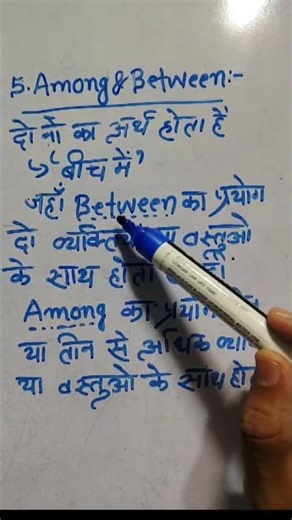 5. Among & Between:-
दोनों का अर्थ होता है
↳ 'बीच में'
जहाँ Between का प्रयोग
दो वस्तुओ
के साथ होता
Among का प्रयोग
या तीन से अधिक
या वस्तुओ के साथ हो